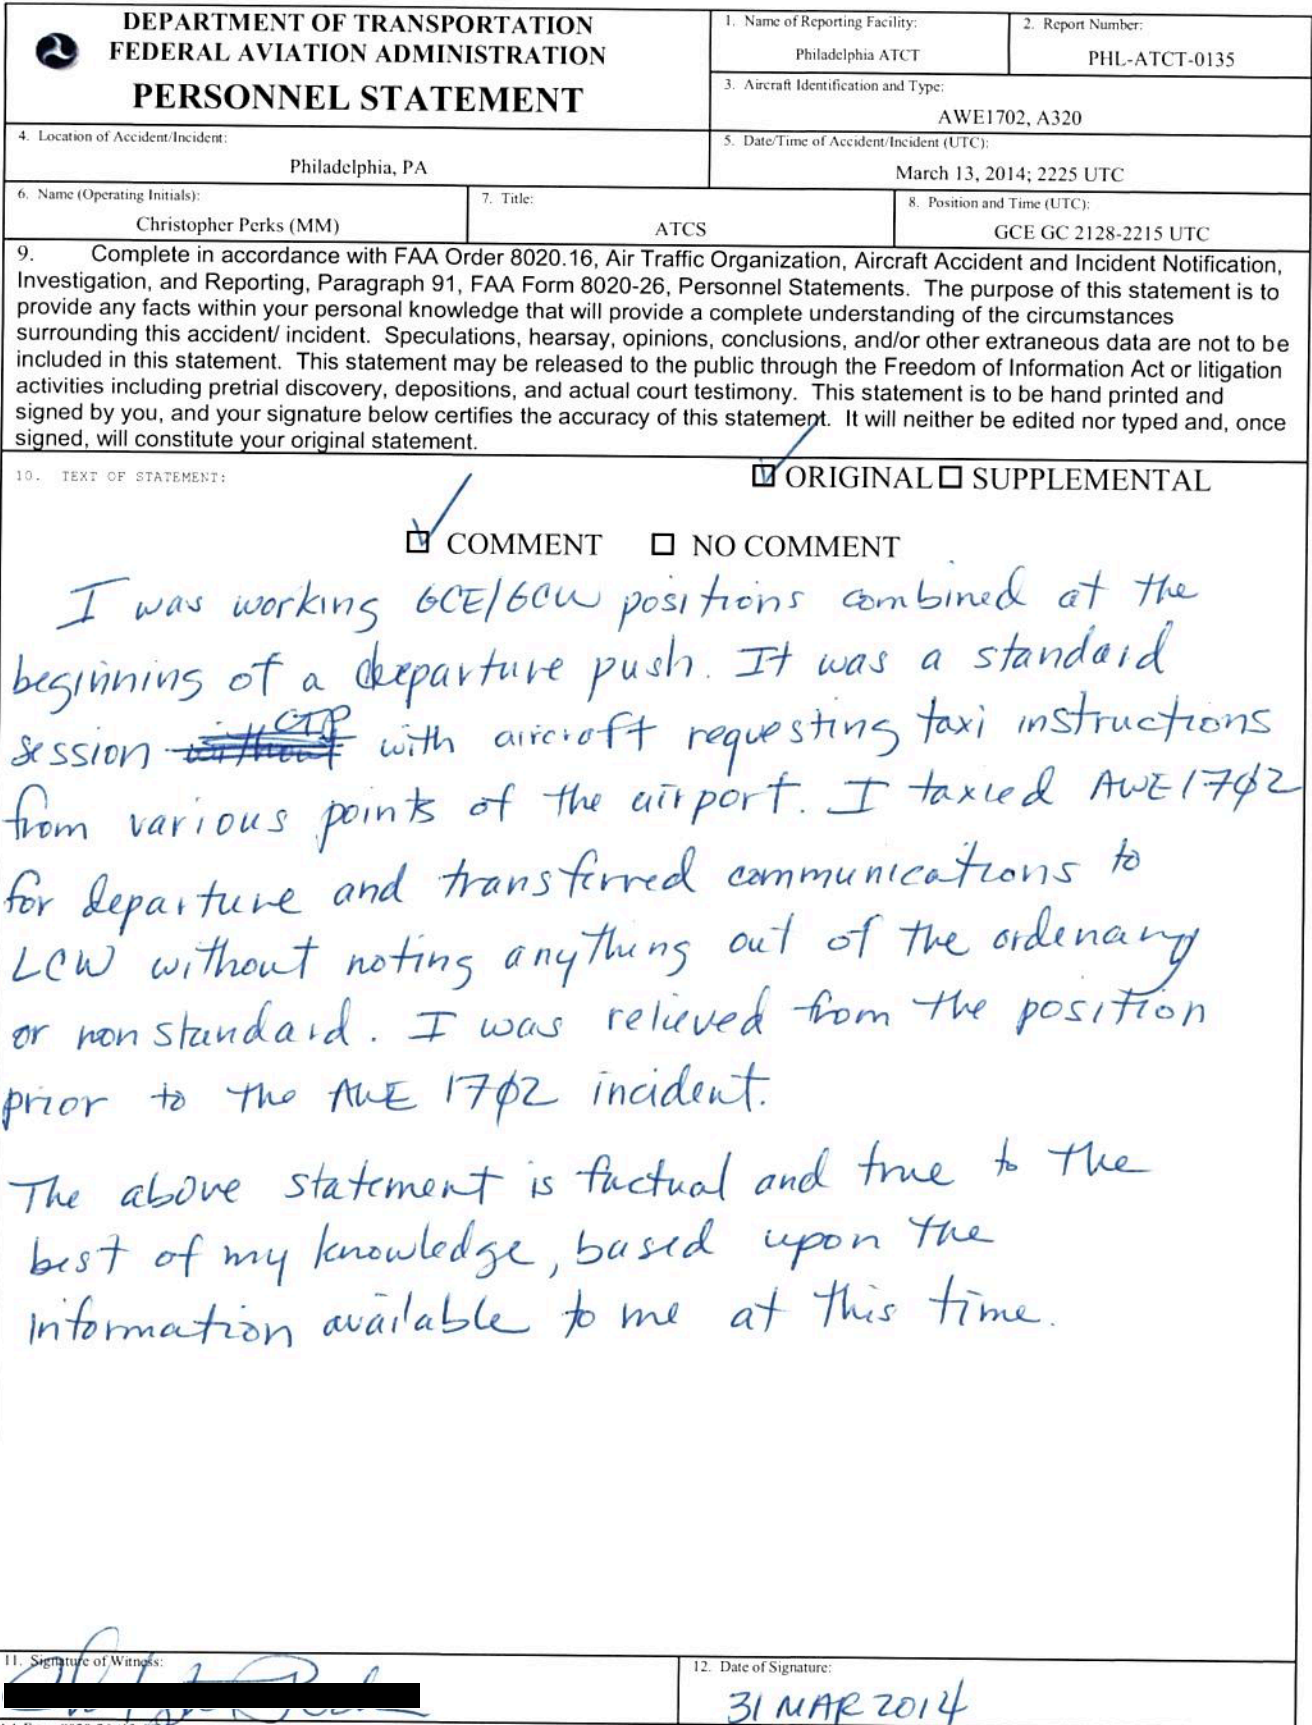 DEPARTMENT OF TRANSPORTATION
FEDERAL AVIATION ADMINISTRATION
PERSONNEL STATEMENT
1. Name of Reporting Facility:
Philadelphia ATCT
2. Report Number:
PHL-ATCT-0135
3. Aircraft Identification and Type:
AWE1702, A320
4. Location of Accident/Incident:
Philadelphia, PA
5. Date/Time of Accident/Incident (UTC):
March 13, 2014; 2225 UTC
6. Name (Operating Initials):
Christopher Perks (MM)
7. Title:
ATCS
8. Position and Time (UTC):
GCE GC 2128-2215 UTC
9. Complete in accordance with FAA Order 8020.16, Air Traffic Organization, Aircraft Accident and Incident Notification,
Investigation, and Reporting, Paragraph 91, FAA Form 8020-26, Personnel Statements. The purpose of this statement is to
provide any facts within your personal knowledge that will provide a complete understanding of the circumstances
surrounding this accident/ incident. Speculations, hearsay, opinions, conclusions, and/or other extraneous data are not to be
included in this statement. This statement may be released to the public through the Freedom of Information Act or litigation
activities including pretrial discovery, depositions, and actual court testimony. This statement is to be hand printed and
signed by you, and your signature below certifies the accuracy of this statement. It will neither be edited nor typed and, once
signed, will constitute your original statement.
10. TEXT OF STATEMENT:
ORIGINAL SUPPLEMENTAL
COMMENT NO COMMENT
I was working GCE/GCW positions combined at the
beginning of a departure push. It was a standard
session with aircraft requesting taxi instructions
from various points of the airport. I taxied AWE17φ2
for departure and transferred communications to
LCW without noting anything out of the ordenary
or nonstandard. I was relieved from the position
prior to the AWE 17φ2 incident.
The above statement is factual and true to the
best of my knowledge, based upon the
information available to me at this time.
11. Signature of Witness:
12. Date of Signature:
31 MAR 2014